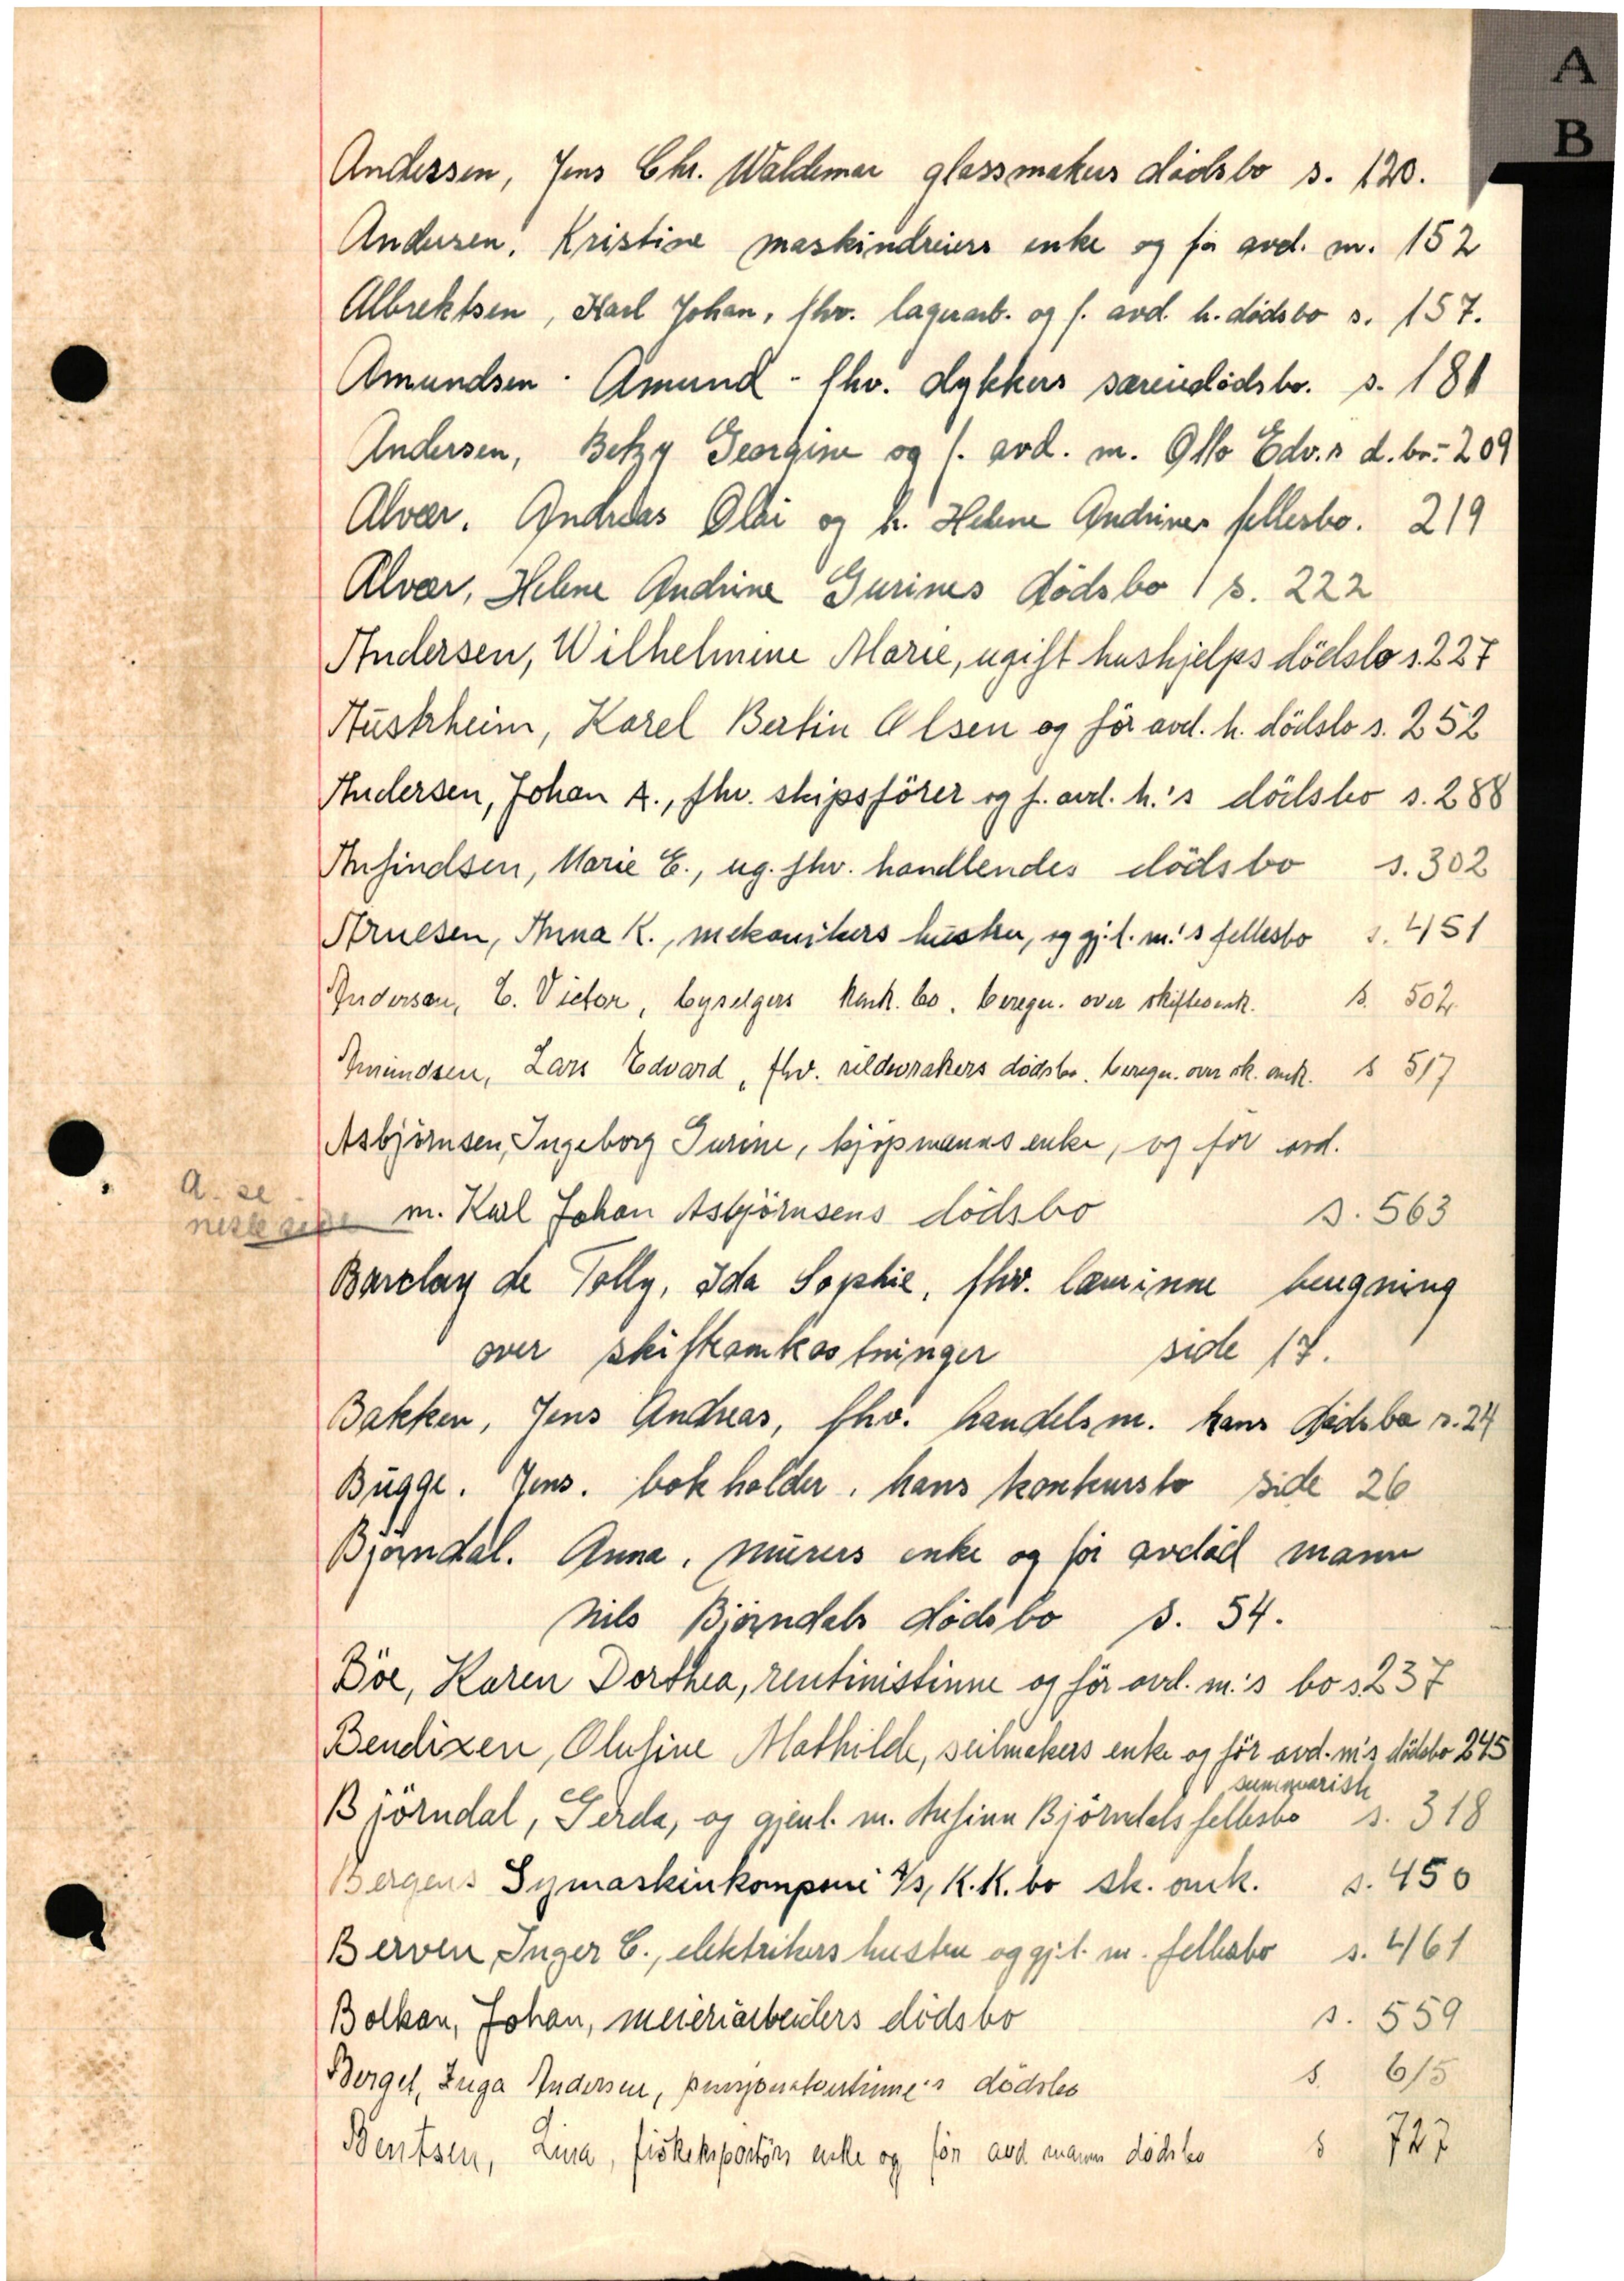 A
B
Anderssen, Jens Chr. Waldemar glassmakers dödsbo s. 120.
Andersen, Kristine maskindreiers enke og för avd. m. 152
Albrektsen, Karl Johan, fhv. lagerarb. og f. avd. h. dödsbo s. 157.
Amundsen - Amund - fhv. dykkers særeiedödsbo. s. 181
Andersen, Betzy Georgine og f. avd. m. Otto Edv.s d.bo - 209
Alvær. Andreas Olai og h. Helene Andrines fellesbo. 219
Alvær, Helene Andrine Gurines dödsbo s. 222
Andersen, Wilhelmine Marie, ugift hushjelps dödsbo s. 227
Austrheim, Karel Bertin Olsen og för avd. h. dödsbo s. 252
Andersen, Johan A., fhv. skipsförer og f. avd. h.'s dödsbo s. 288
Anfindsen, Marie E., ug. fhv. handlendes dödsbo s. 302
Arnesen, Anna K., mekanikers hustru, og gj.l. m.'s fellesbo s. 451
Anderson, C. Victor, byselgers konk. bo. beregn. over skifteomk. s. 502
Amundsen, Lars Edvard, fhv. sildevrakers dødsbo. beregn. over sk. omk. s 517
Asbjörnsen, Ingeborg Gurine, kjøpmanns enke, og för avd.
A. se
neste side
m. Karl Johan Asbjörnsens dödsbo s. 563
Barclay de Tolly, Ida Sophie, fhv. lærerinne beregning
over skifteomkostninger side 17.
Bakken, Jens Andreas, fhv. handelsm. hans dödsbo s. 24
Bugge. Jens. bokholder. hans konkursbo side 26
Björndal. Anna. murers enke og för avdöd mann
Nils Björndals dödsbo s. 54.
Böe, Karen Dorthea, rentinistinne og för avd. m.'s bo s. 237
Bendixen, Olufine Mathilde, seilmakers enke og för avd. m's dödsbo 245
summarisk
Björndal, Gerda, og gjenl. m. Anfinn Björndals fellesbo s. 318
Bergens Symaskinkompani A/S, K.K. bo sk. omk. s. 450
Berven, Inger C., elektrikers hustru og gj.l. m. fellesbo s. 461
Bolkan, Johan, meieriarbeiders dödsbo s. 559
Berget, Inga Andersen, pensjonatvertinne's dødsbo s 615
Bentsen, Lina, fiskeksportörs enke og för avd manns dödsbo s 727